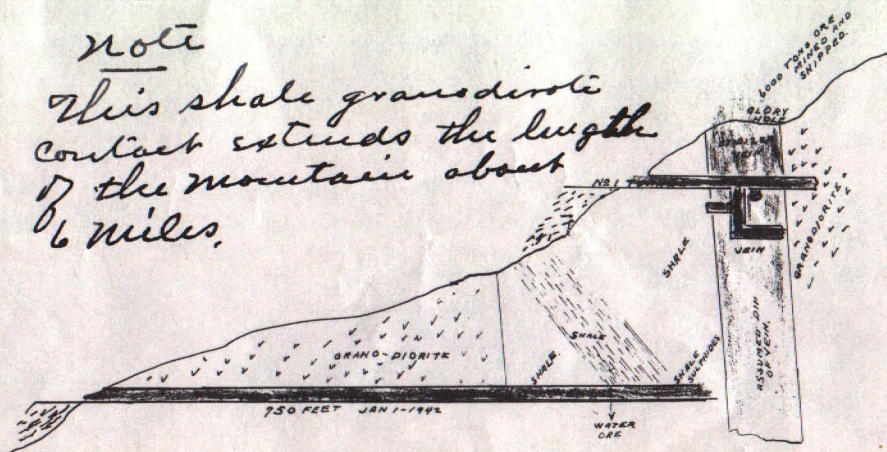 Note
This shale granodirote
contact extends the length
of the mountain about
6 miles.
6000 TONS ORE
MINED AND
SHIPPED.
GLORY
HOLE
NO 1
VEIN
GRANODIORITE
SHALE
ASSURED DIP
OF VEIN.
GRANO-DIORITE
SHALE
SHALE.
SHALE
SULPHIDES
750 FEET JAN 1-1942
WATER
ORE